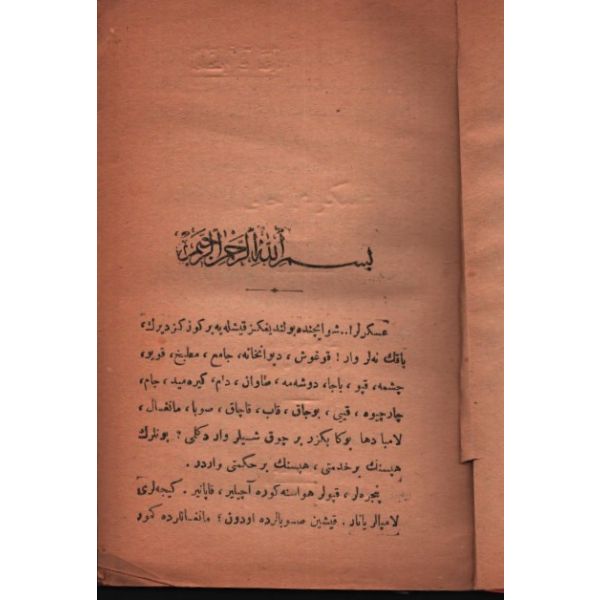 بسم الله الرحمن الرحيم
عسكرلر!.. شو ايچنده بولنديغكز قيشله‌يه بر كوز كزديرك،
باقك نه‌لر وار! قوغوش، ديوانخانه، جامع، مطبخ، قويو،
چشمه، قپو، باجا، دوشه‌مه، طاوان، دام، كيره‌ميد، جام،
چارچيوه، قپى، بوجاق، قاب، قاچاق، صوبا، مانغال،
لامبا دها بوكا بكزر بر چوق شيلر وار دكلمى؟ بونلرك
هپسنك بر خدمتى، هپسنك بر حكمتى واردر.
پنجره‌لر، قپولر هواسنه كوره آچيلير، قاپانير. كيجه‌لرى
لامپالر يانار. قيشين صوبالرده اودون؛ مانغاللرده كمور